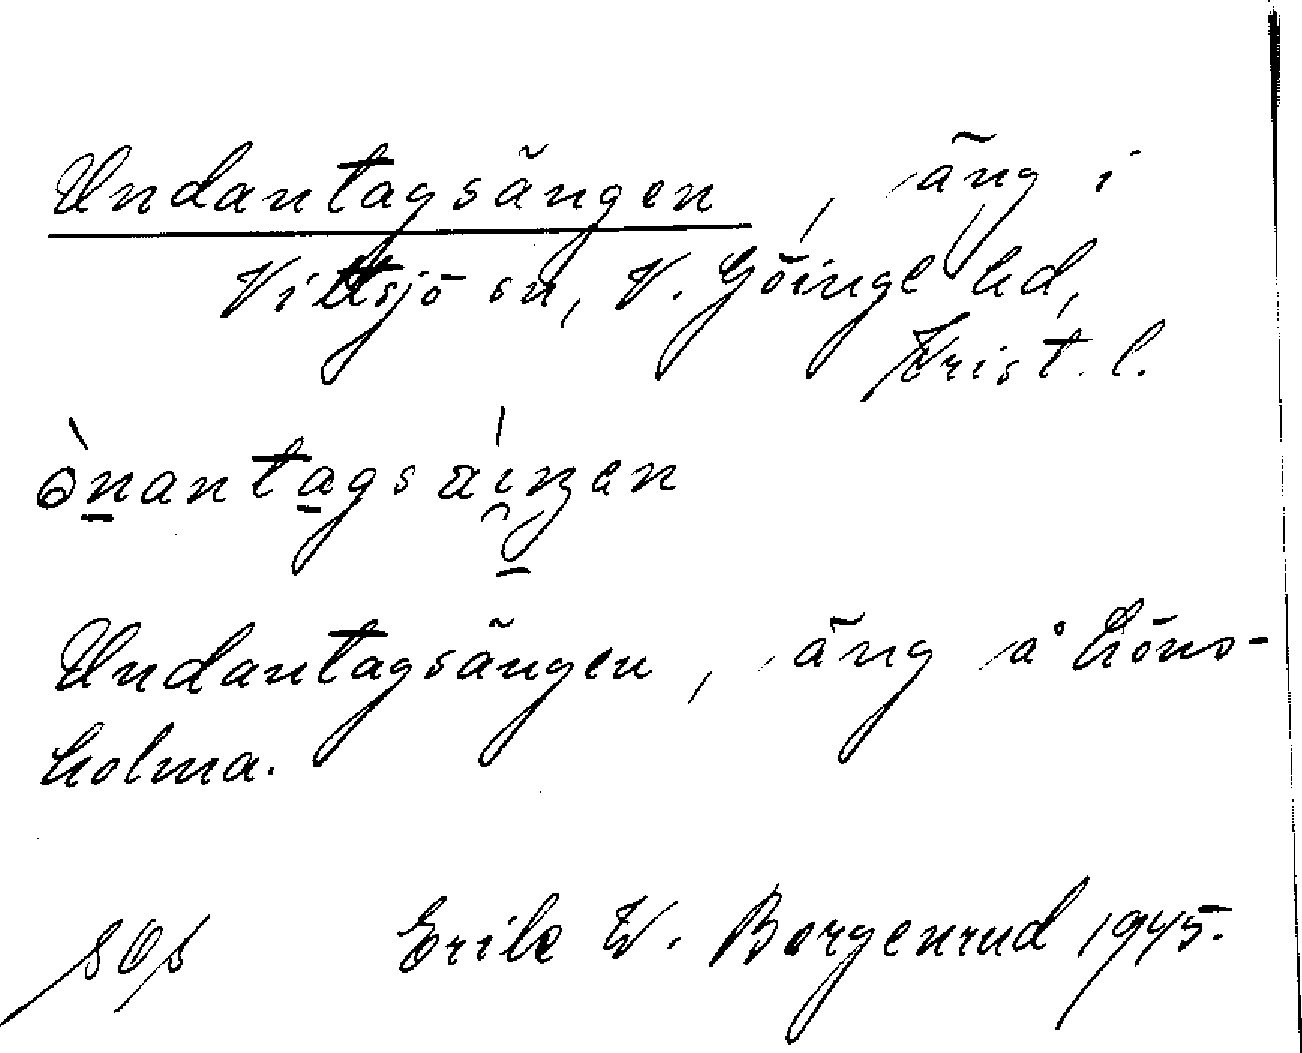 Undantagsängen, äng i
Vittsjö sn, V. Göinge hd,
Krist. l.
Undantagsängen, äng å Höns-
holma.
Erik W. Borgenrud 1945.